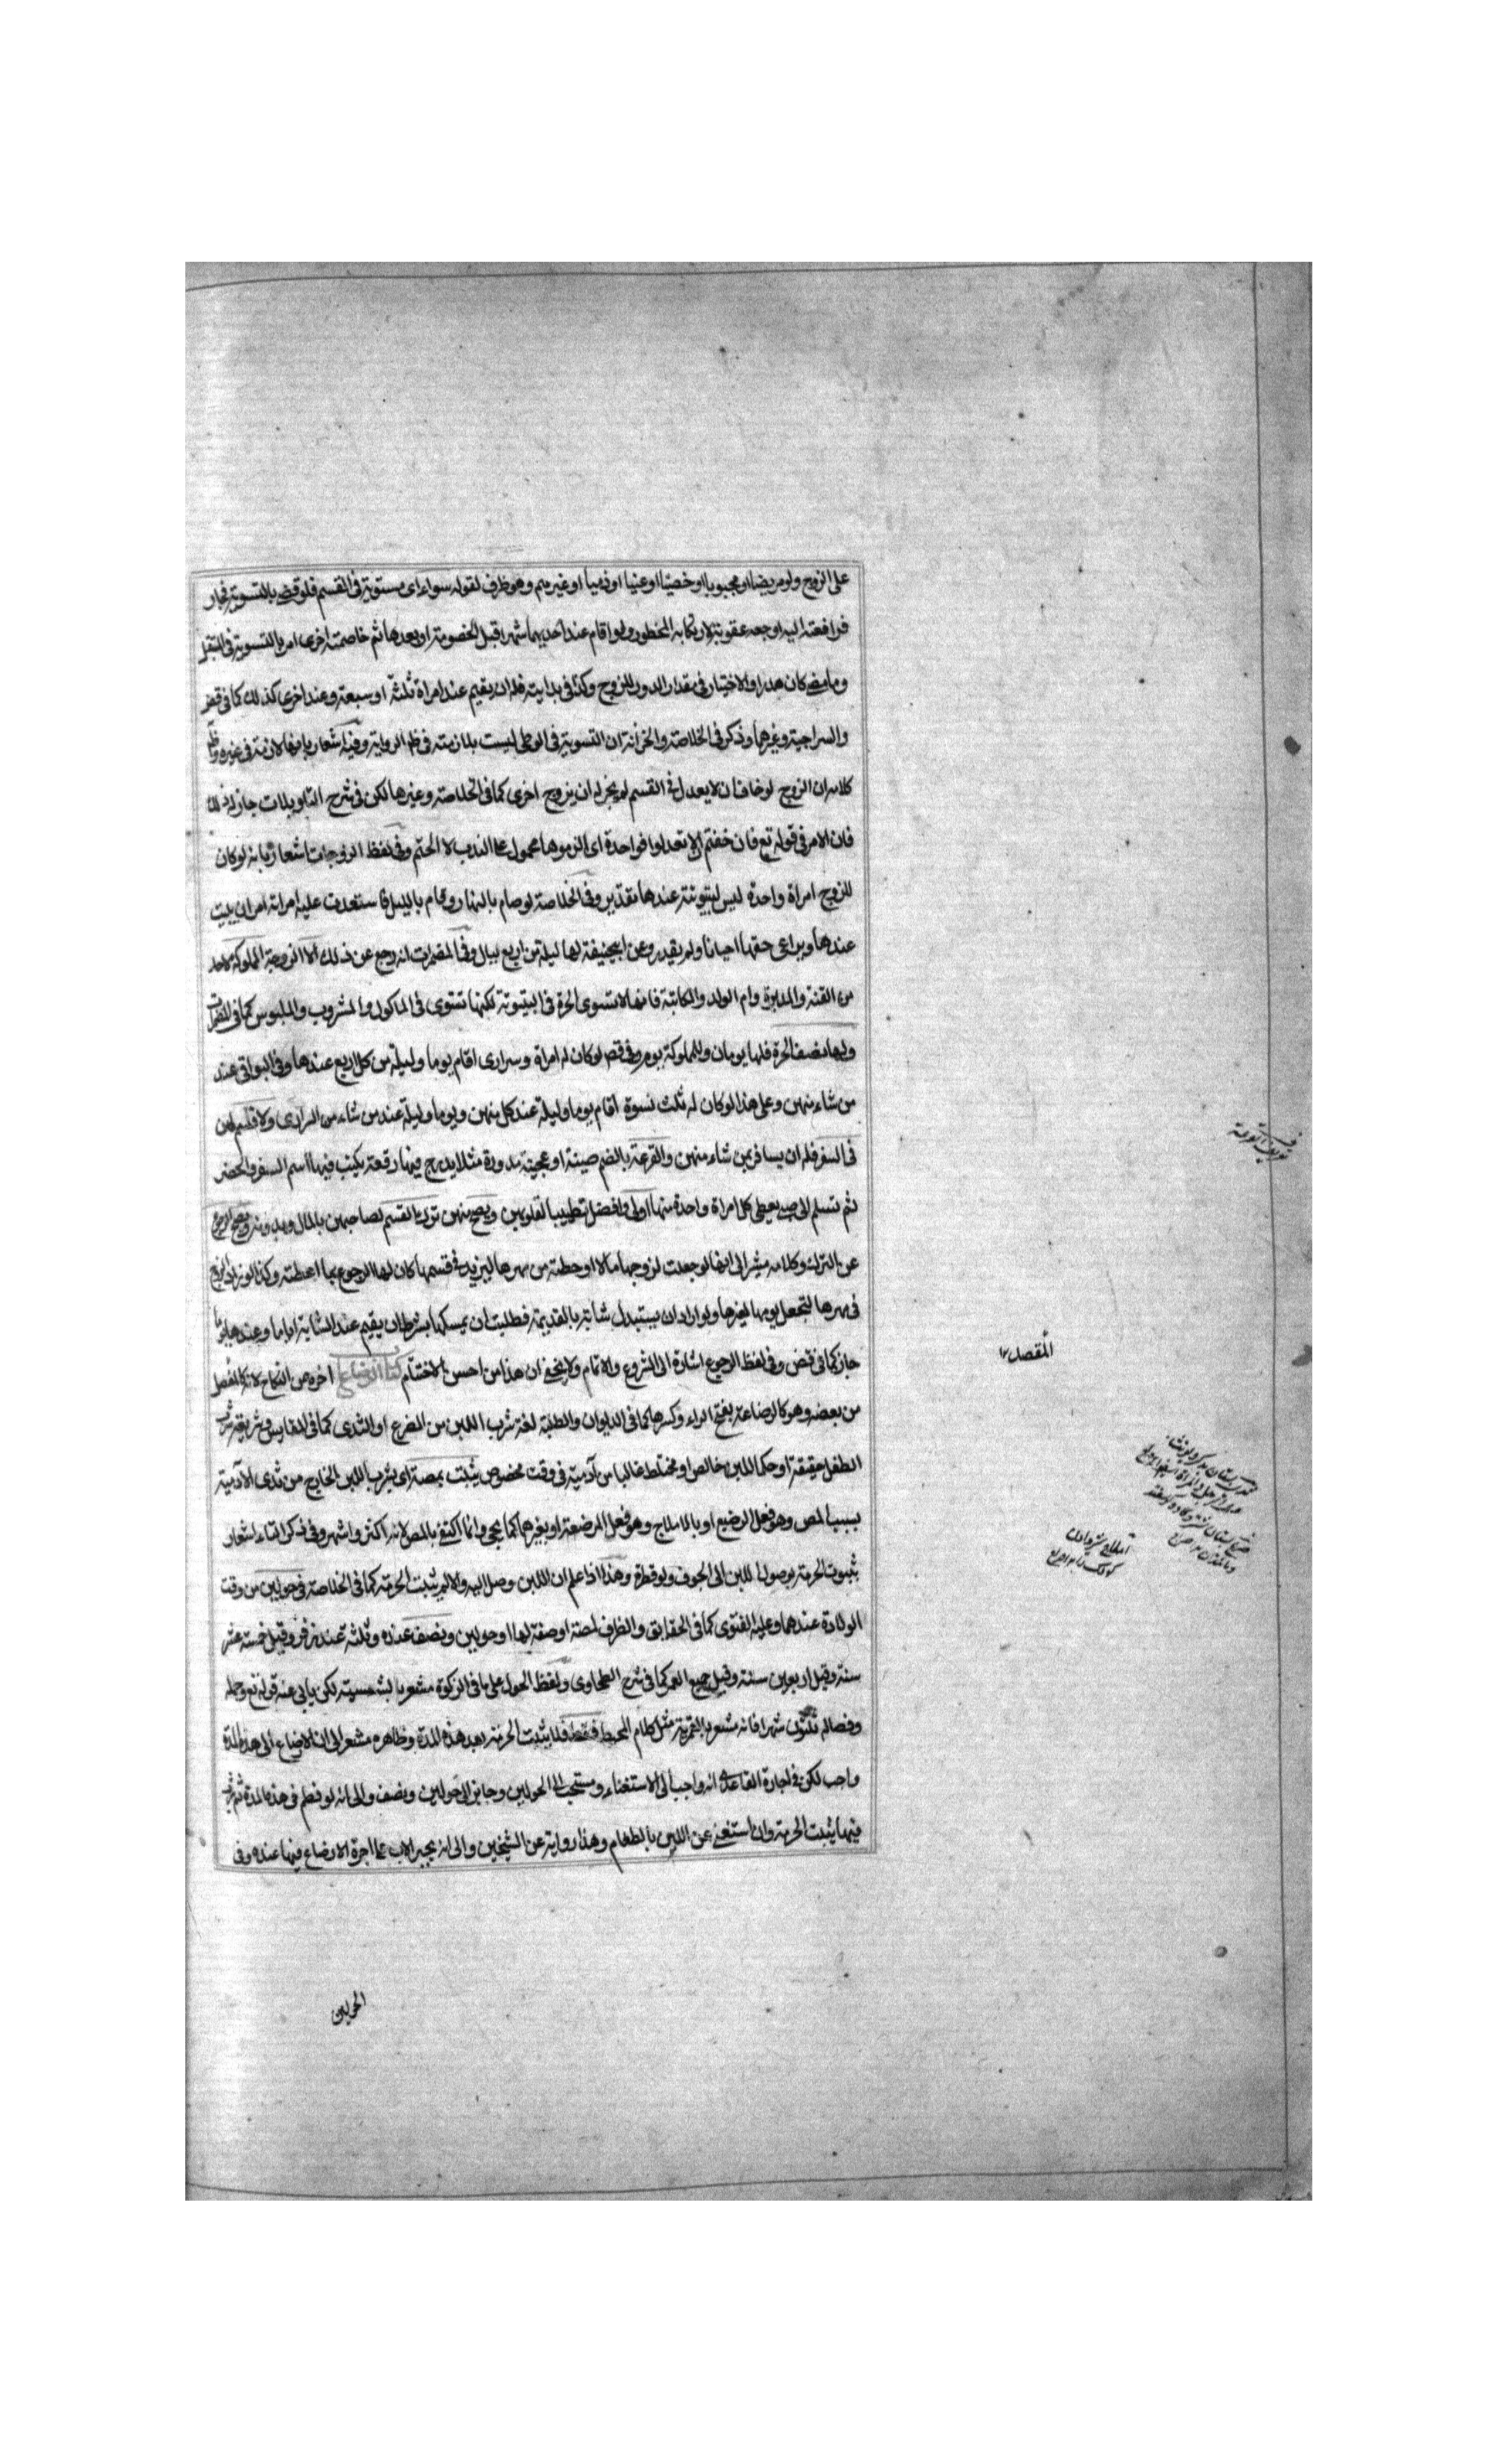 على الزوج ولو مريضا او مجبوبا او خصيا او عنينا او ذميا او غيرهم وهو ظرف لقوله سواء اى مستوية فى القسم فلو قضى بالتسوية فجار
فرافعته اليه اوجعه عقوبة لارتكابه المحظور ولو اقام عند احديهما شهرا قبل الخصومة او بعدها ثم خاصمته اخرى امر بالتسوية فى المستقبل
وما مضى كان هدرا والاختيار فى مقدار الدور للزوج وكذا فى بدايته فله ان يقيم عند امراة ثلثة او سبعة وعند اخرى كذلك كما فى قض
والسراجية وغيرها وذكر فى الخلاصة والخزانة ان التسوية فى الوطى ليست بلازمة فى ظ الرواية وفيه اشعار بانها لازمة فى غيره وظ
كلامه ان الزوج لو خاف ان لا يعدل فى القسم لم يجز له ان يزوج اخرى كما فى الخلاصة وغيرها لكن فى شرح التاويلات جاز له ذلك
فان الامر فى قوله تع فان خفتم الا تعدلوا فواحدة اى الزموها محمول على الندب لا الحتم وفى لفظ الزوجات اشعار بانه لو كان
للزوج امراة واحدة ليس لبيتوتته عندها تقدير وفى الخلاصة لو صام بالنهار وقام بالليل فاستعدت عليه امراته امر ان يبيت
عندها ويراعى حقها احيانا ولم يقدر وعن ابيحنيفة لها ليلة من اربع ليال وفى المضمرات انه رجع عن ذلك الا الزوجة المملوكة لاحد
من القنة والمدبرة وام الولد والمكاتبة فانها لا تسوى الحرة فى البيتوتة لكنها تستوى فى الماكول والمشروب والملبوس كما فى المضمرات
ولها نصف الحرة فلها يومان وللمملوكة يوم وفى قض لو كان له امراة وسرارى اقام يوما وليلة من كل اربع عندها وفى البواقى عند
من شاء منهن وعلى هذا لو كان له ثلث نسوة اقام يوما وليلة عند كل منهن ويوما وليلة عند من شاء من السرارى ولا قسم لهن
فى السفر فله ان يسافر بمن شاء منهن والقرعة بالضم طينة او عجينة مدورة مثلا يدرج فيها رقعة يكتب فيها اسم السفر والحضر
ثم تسلم الى صبى يعطى كل امراة واحدة منها اولى وافضل تطييبا لقلوبهن ويصح منهن ترك القسم لصاحبهن بالمال وبدونه ويصح الرجوع
عن الترك وكلامه مشير الى انها لو جعلت لزوجها مالا او حطت من مهرها ليزيد فى قسمها كان لها الرجوع بما اعطته وكذا لو زاد الزوج
فى مهرها لتجعل يومها لغيرها ولو اراد ان يستبدل شابة بالقديمة فطلبت ان يمسكها بشرط ان يقيم عند الشابة اياما وعندها يوما
جاز كما فى قض وفى لفظ الرجوع اشارة الى الشروع والاتمام ولا يخفى ان هذا من احسن الاختتام كتاب الرضاع اخره من النكاح لانه كالفصل
من بعضه وهو كالرضاعة بفتح الراء وكسرها كما فى الديوان والطلبة لغة شرب اللبن من الضرع او الثدى كما فى المقاييس وشريعة شرب
الطفل حقيقة او حكما للبن خالص او مختلط غالبا من آدمية فى وقت مخصوص يثبت بمصة اى بشرب اللبن الخارج من ثدى الآدمية
بسبب المص وهو فعل الرضيع او بالاملاج وهو فعل المرضعة او بغيرها كما يجئ وانما اكتفى بالمص لانه اكثر واشهر وفى ذكر التاء اشعار
بثبوت الحرمة بوصول اللبن الى الجوف ولو قطرة وهذا اذا علم ان اللبن وصل اليه والا لم يثبت الحرمة كما فى الخلاصة فى حولين من وقت
الولادة عندهما وعليه الفتوى كما فى الحقايق والظرف لمصة او صفة لها او حولين ونصف عنده وثلثة عند زفر وقيل خمسة عشر
سنة وقيل اربعين سنة وقيل جميع العمر كما فى شرح الطحاوى ولفظ الحول على ما فى الزكوة مشعر بالشمسية لكن يابى عنه قوله تع وحمله
وفصاله ثلثون شهرا فانه مشعر بالقمرية مثل كلام المحيط فقط فلا يثبت الحرمة بعد هذه المدة وظاهره مشعر الى ان الارضاع الى هذه المدة
واجب لكن فى اجارة القاعدى انه واجب الى الاستغناء ومستحب الى الحولين وجايز الى حولين ونصف والى انه لو فطم فى هذه المدة ثم شرب
فيها يثبت الحرمة وان استغنى عن اللبن بالطعام وهذا رواية عن الشيخين والى انه يجبر الاب على اجرة الارضاع فيها عنده وفى
الحولين
المقصل